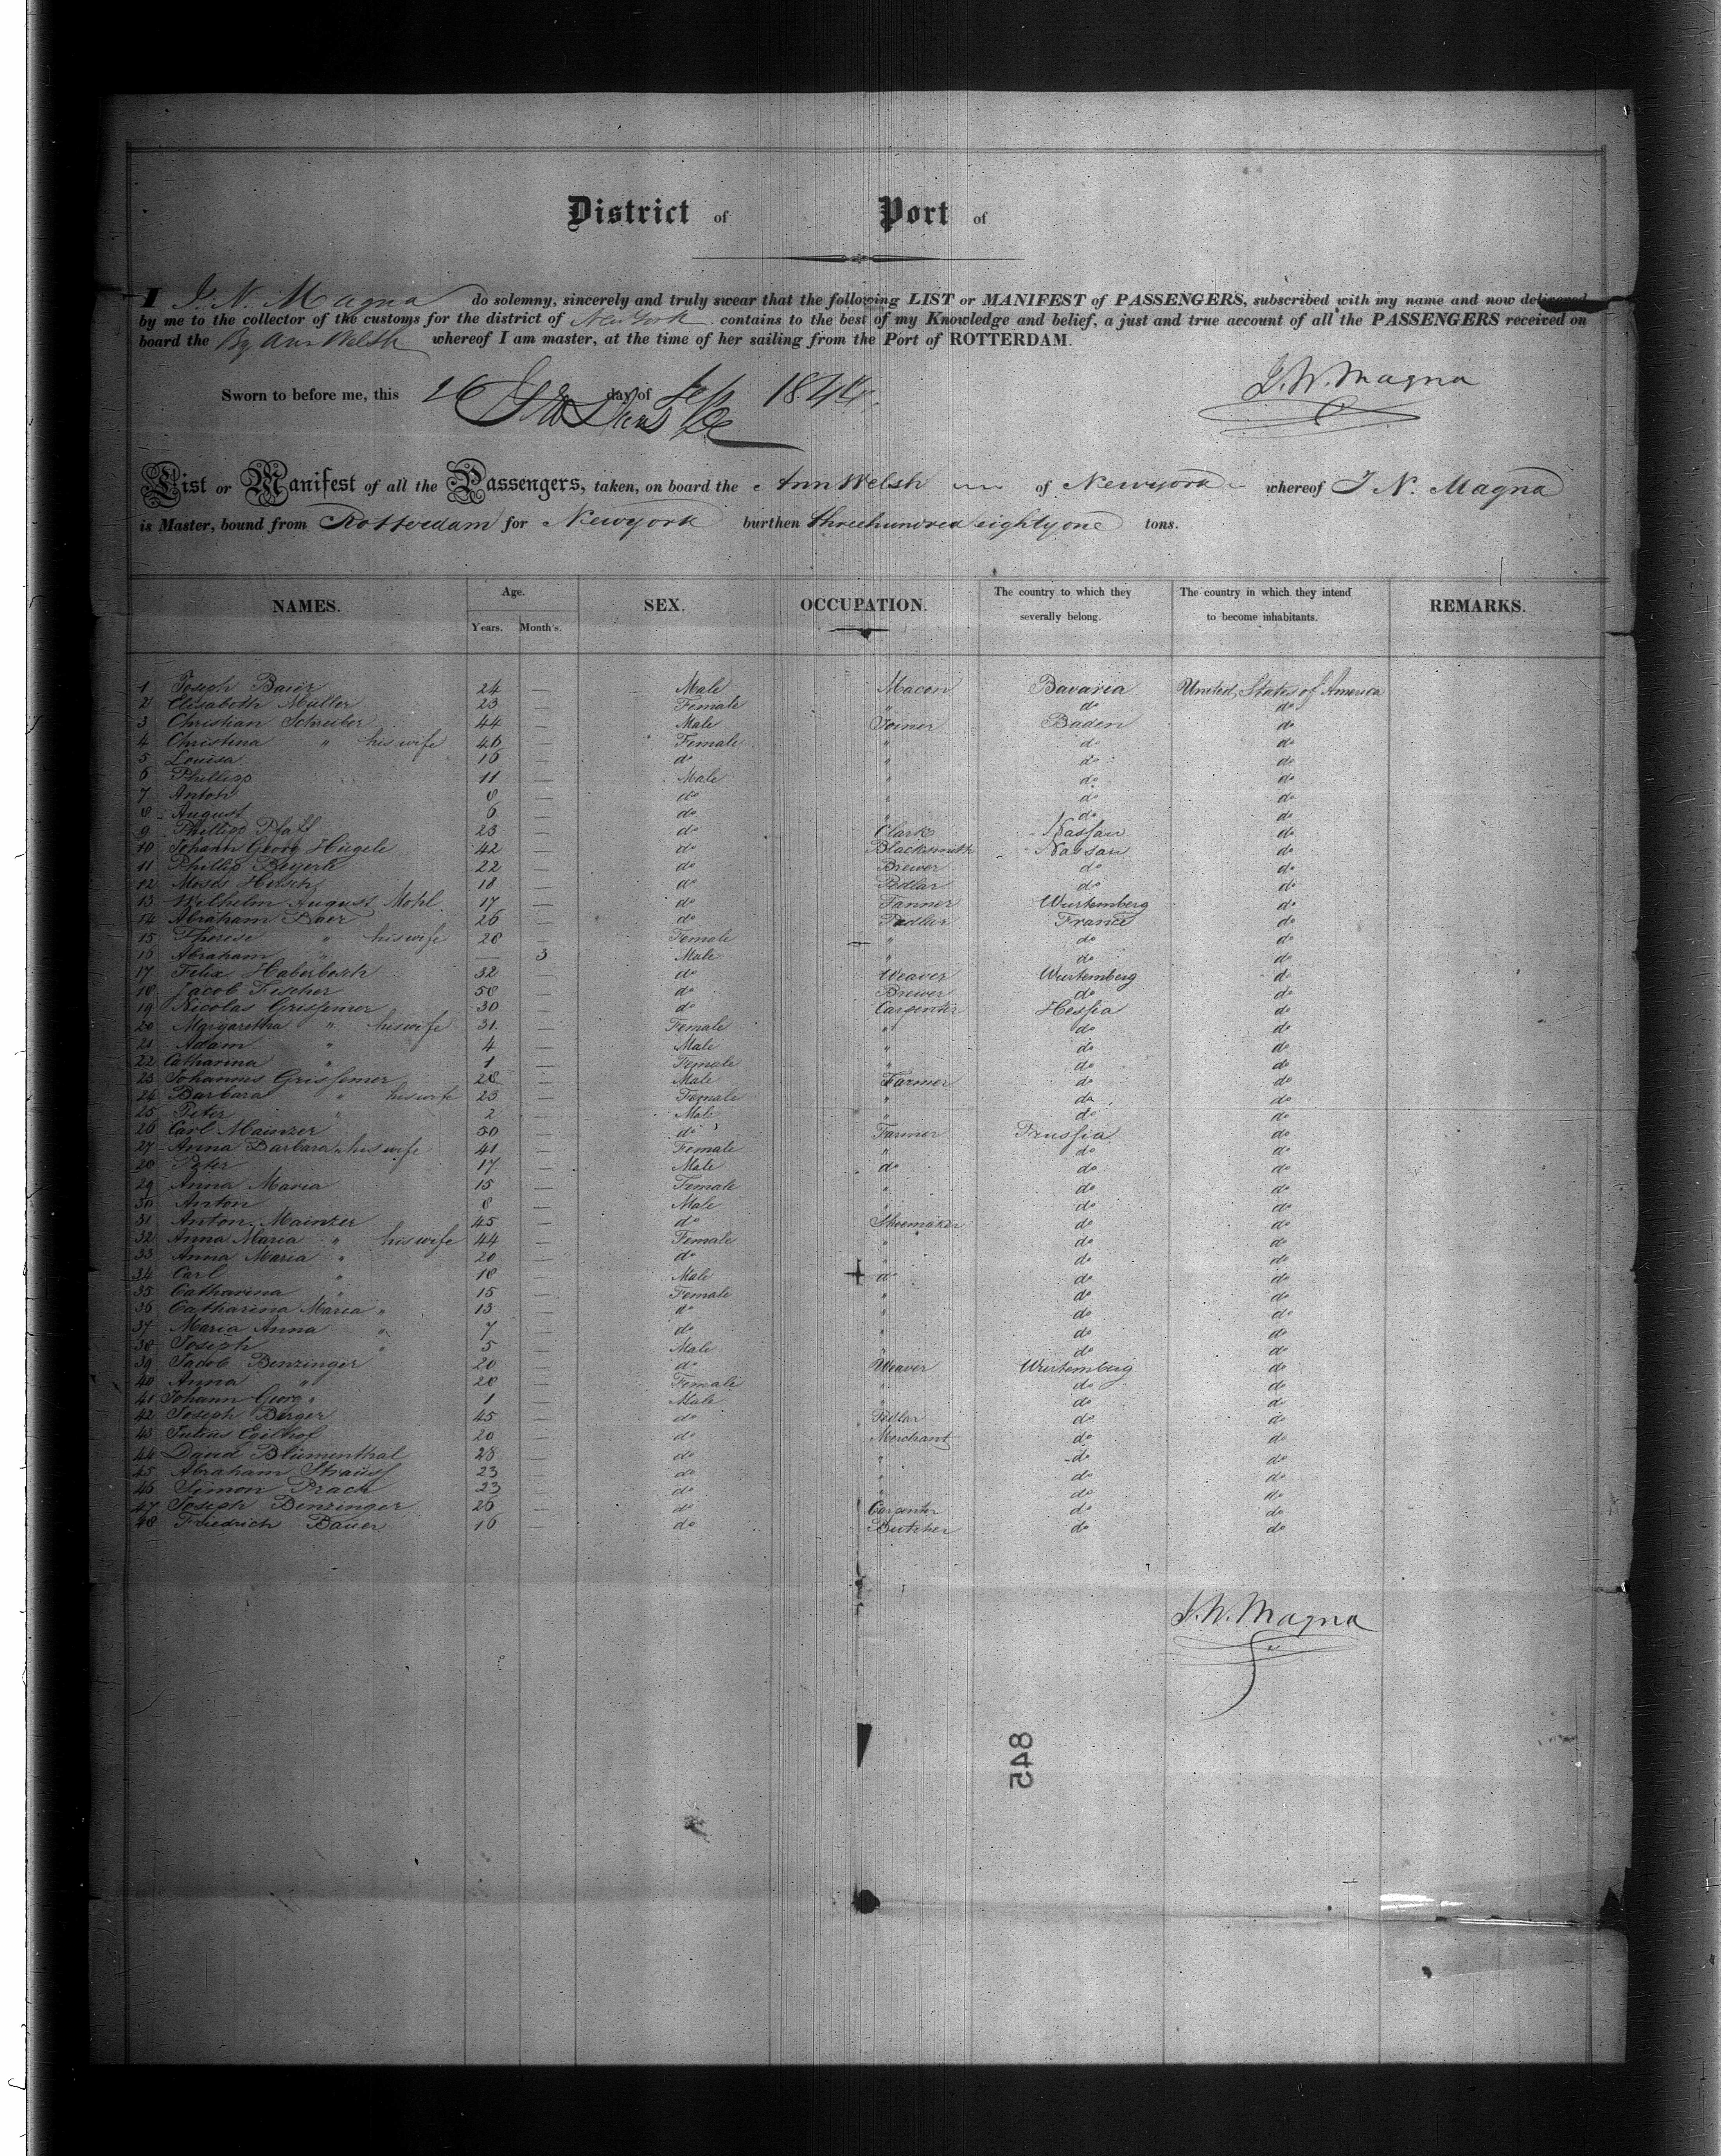 District of Port of
I J. N. Magna do solemny, sincerely and truly swear that the following LIST or MANIFEST of PASSENGERS, subscribed with my name and now delivered
by me to the collector of the customs for the district of New York contains to the best of my Knowledge and belief, a just and true account of all the PASSENGERS received on
board the Bg Ann Welsh whereof I am master, at the time of her sailing from the Port of ROTTERDAM.
J. W. Magna
Sworn to before me, this 26 day of 1844
List or Manifest of all the Passengers, taken, on board the Ann Welsh of Newyork whereof J N. Magna
is Master, bound from Rotterdam for Newyork burthen threehundred eightyone tons.
NAMES. Age. Years. Month's. SEX. OCCUPATION. The country to which they severally belong. The country in which they intend to become inhabitants. REMARKS.
1 Joseph 24 — Male Macon Bavaria United States of America
2 Elisabeth Müller 23 — Female " do do
3 Christian Schreiber 44 — Male Joiner Baden do
4 Christina " his wife 46 — Female " do do
5 Louisa 16 — do " do do
6 Phillipp 11 — Male " do do
7 Anton 8 — do " do do
8 August 6 — do " do do
9 Phillipp Pfaff 23 — do Clark Nassau do
10 Johann Georg Hügele 42 — do Blacksmith Nassau do
11 Phillip Beyerle 22 — do Brewer do do
12 Moses Hirsch 18 — do Pedlar do do
13 Wilhelm August Mohl 17 — do Tanner Wurtemberg do
14 Abraham Baer 26 — do Pedlar France do
15 Therese " his wife 28 — Female " do do
16 Abraham " — 3 Male " do do
17 Felix Haberbosch 32 — do Weaver Wurtemberg do
18 Jacob Fischer 58 — do Brewer do do
19 Nicolas Grissemer 30 — do Carpenter Hessia do
20 Margaretha " his wife 31 — Female " do do
21 Adam " 4 — Male " do do
22 Catharina " 1 — Female " do do
23 Johannes Grissemer 28 — Male Farmer do do
24 Barbara " his wife 23 — Female " do do
25 Peter " 2 — Male " do do
26 Carl Mainzer 50 — do Farmer Prussia do
27 Anna Barbara " his wife 41 — Female " do do
28 Peter 17 — Male do do do
29 Anna Maria 15 — Female " do do
30 Anton 8 — Male " do do
31 Anton Mainzer 45 — do Shoemaker do do
32 Anna Maria " his wife 44 — Female " do do
33 Anna Maria " 20 — do " do do
34 Carl " 18 — Male do do do
35 Catharina " 15 — Female " do do
36 Catharina Maria " 13 — do " do do
37 Maria Anna " 7 — do " do do
38 Joseph " 5 — Male " do do
39 Jacob Benzinger 20 — do Weaver Wurtemberg do
40 Anna " 28 — Female " do do
41 Johann Georg " 1 — Male " do do
42 Joseph Berger 45 — do Pedlar do do
43 Julius 20 — do Merchant do do
44 David Blümenthal 28 — do " do do
45 Abraham Strauss 23 — do " do do
46 Simon Prach 23 — do " do do
47 Joseph Benzinger 26 — do Carpenter do do
48 Friedrich Bauer 16 — do Butcher do do
J. W. Magna
845